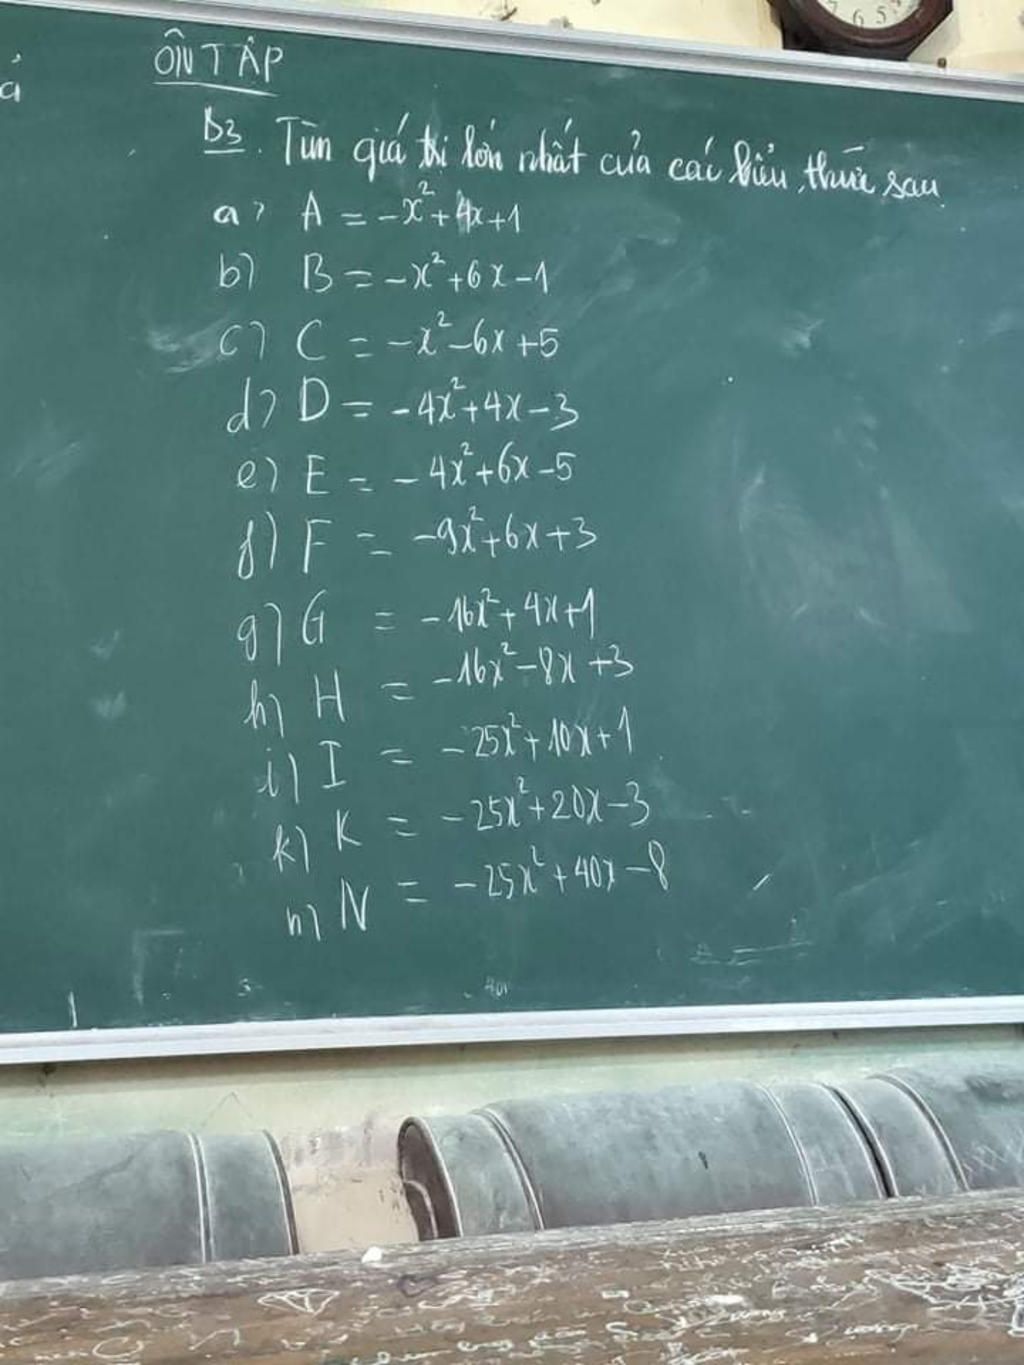 ả
ÔN TẬP
B3. Tìm giá trị lớn nhất của các biểu thức sau
a) A = -x²+4x+1
b) B = -x²+6x-1
c) C = -x²-6x+5
d) D = -4x²+4x-3
e) E = -4x²+6x-5
f) F = -9x²+6x+3
g) G = -16x²+4x+1
h) H = -16x²-8x+3
i) I = -25x²+10x+1
k) K = -25x²+20x-3
n) N = -25x²+40x-8